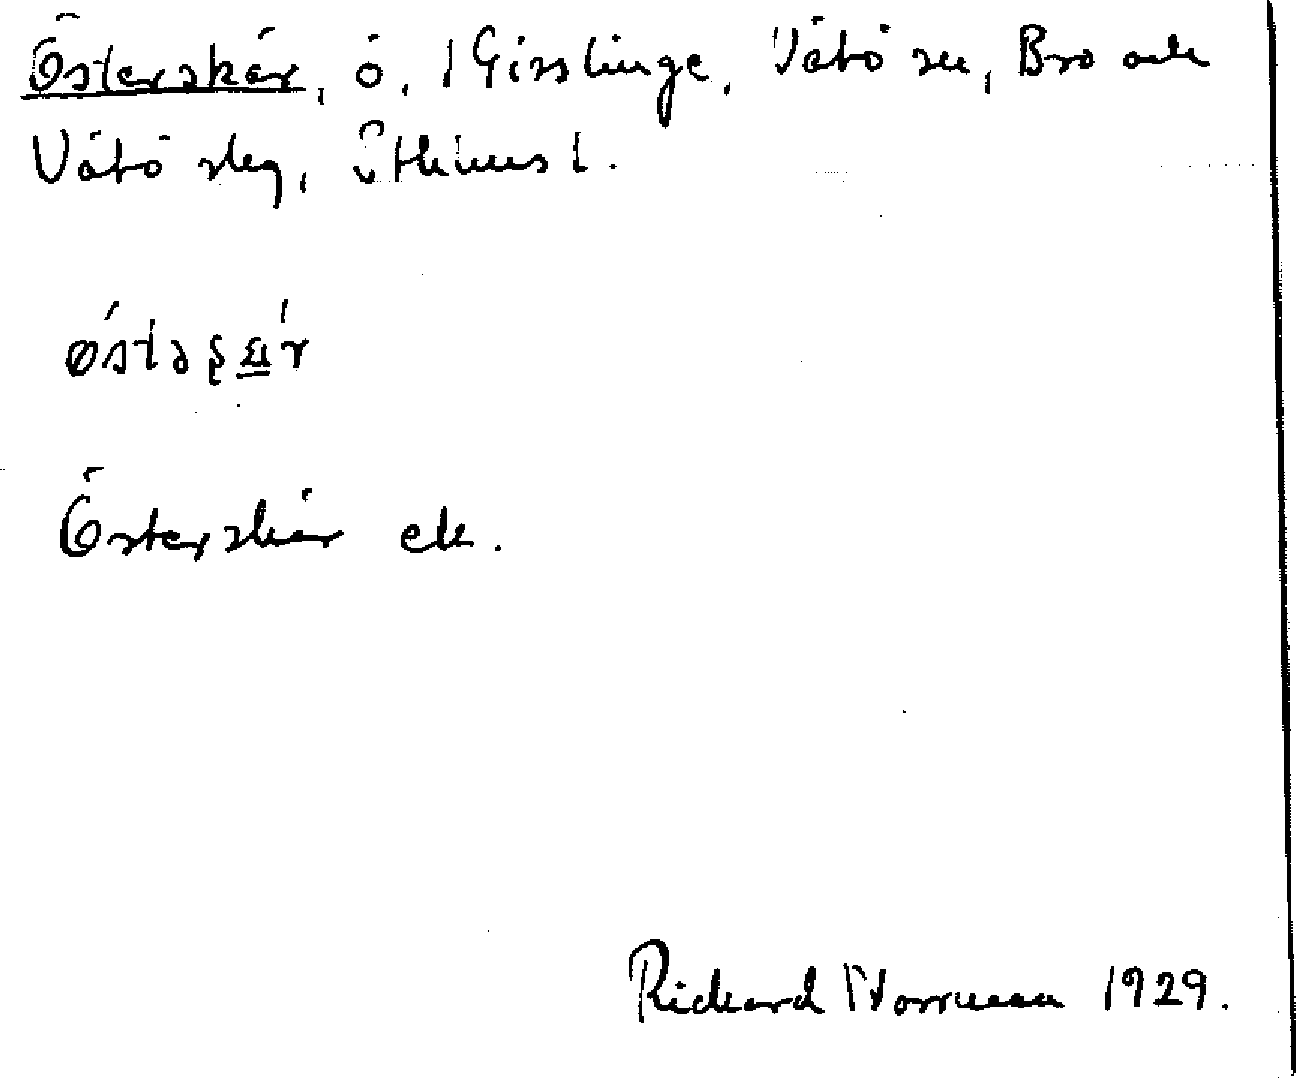 Österskär, ö, Gisslinge, Vätö sn, Bro och
Vätö slg, Sthlms l.
Österskär ek.
Rickard Norrman 1929.